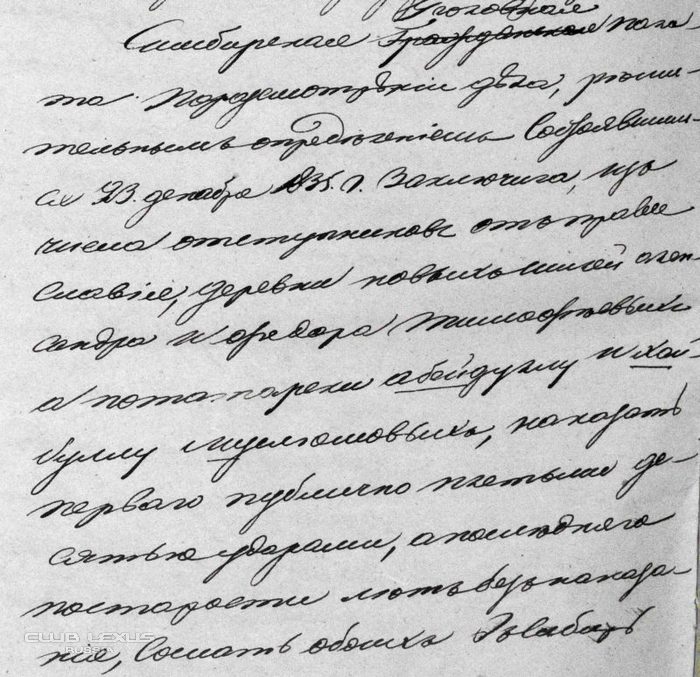 Уголовная
Симбирская Гражданская пала-
та по разсмотрѣніи дѣла, рѣши-
тельнымъ опредѣленіемъ Состоявшим-
ся 23. декабря 1835. г. Заключила, изъ
числа отступниковъ отъ право-
славія, деревни новыхъ алек-
сандра и федора тимофѣевыхъ
а потатарски абейдуллу и хай-
буллу муслюмовыхъ, наказать
перваго публично плетьми де-
сятью ударами, а послѣдняго
по старости лѣтъ безъ наказа-
нія, Сослать обоихъ въ Сибирь
CLUB LEXUS
RUSSIA